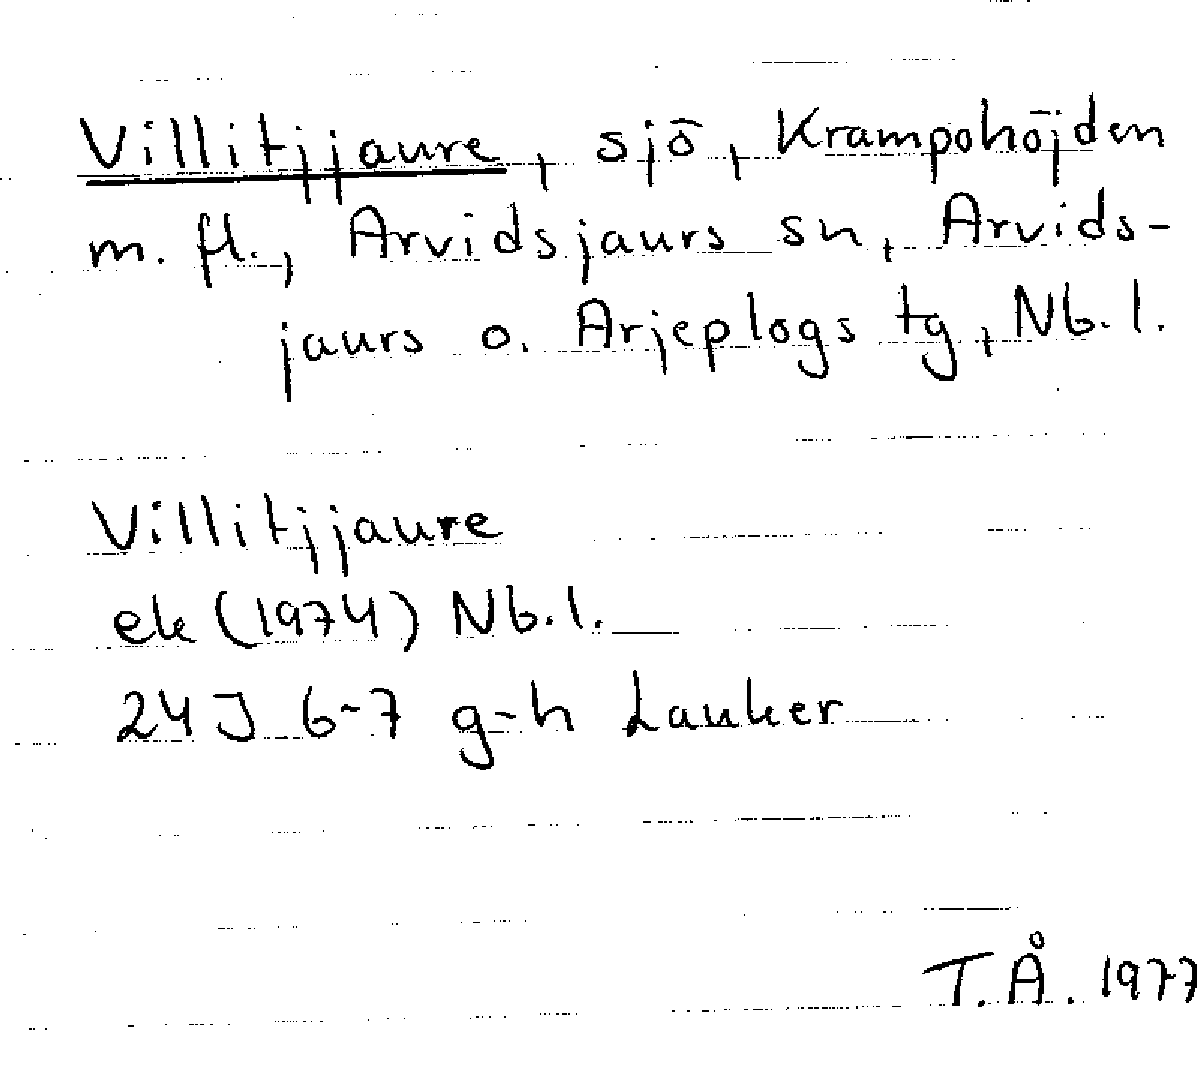 Villitjjaure, sjö, Krampohöjden
m. fl., Arvidsjaurs sn, Arvids-
jaurs o. Arjeplogs tg, Nb. l.
Villitjjaure
ek (1974) Nb. l.
24 J 6-7 g-h Lauker
T.Å. 1977